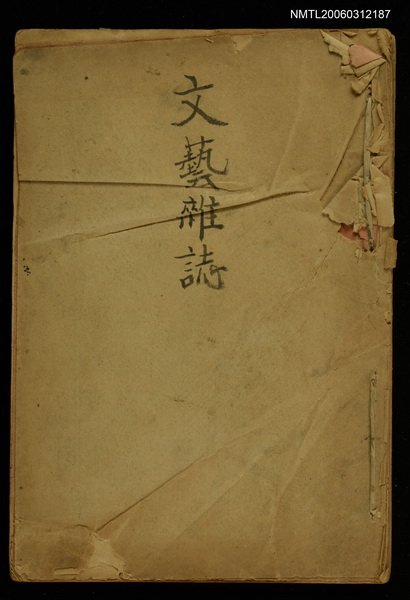 NMTL20060312187
文藝雜誌